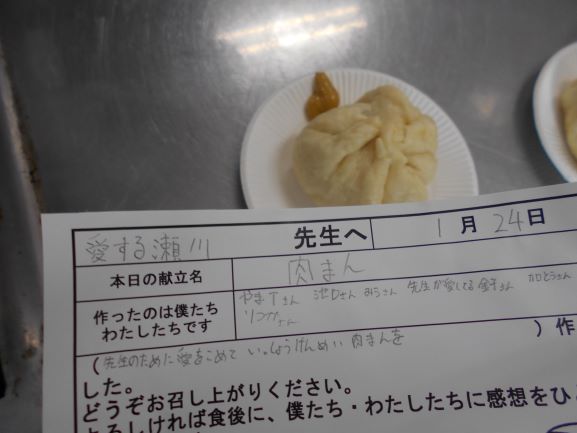 愛する瀬川 先生へ 1月24日
本日の献立名 肉まん
作ったのは僕たち
わたしたちです
先生が愛してる金子さん かとうさん
(先生のために愛をこめて いっしょうけんめい 肉まんを )作
した。
どうぞお召し上がりください。
よろしければ食後に、僕たち・わたしたちに感想をひ